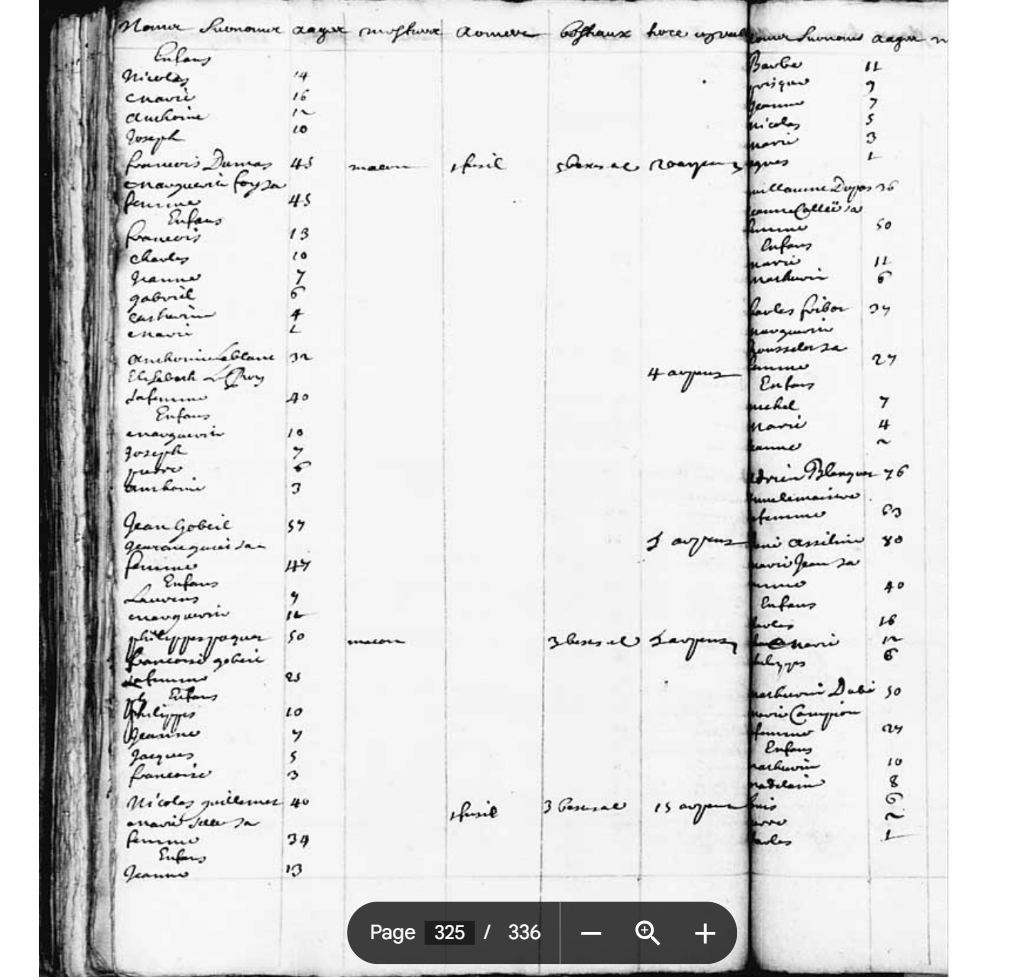 Noms Surnoms aages mestiers Armes bestiaux terre en valleur
Enfans
Nicolas 14
Marie 16
Anthoine 12
Joseph 10
francois Dumas 45 macon 1 fusil 5 bestes al 20 arpens
Marguerite foy sa
femme 45
Enfans
francois 13
charles 10
Jeanne 7
gabriel 6
Catherine 4
Marie 1
Anthoine Leblanc 32
Elisabeth Le Roy 4 arpens
sa femme 40
Enfans
Marguerite 10
Joseph 7
pierre 6
Anthoine 3
Jean Gobeil 57
Jeanne guiet sa 5 arpens
femme 47
Enfans
Laurens 9
Marguerite 12
philippes paquet 50 macon 3 bestes al 5 arpens
francoise gobeil
sa femme 25
Enfans
Philippes 10
Jeanne 7
Jacques 5
francoise 3
Nicolas guillemet 40 1 fusil 3 bestes al 15 arpens
Marie selle sa
femme 34
Enfans
Jeanne 13
noms Surnoms aages
Barbe 11
9
Jeanne 7
Nicolas 5
Marie 3
agnes 1
uillaume Dupas 36
sa
femme 50
Enfans
Marie 11
Mathurin 6
harles fribot 37
Marguerite
Rousselot sa
femme 27
Enfans
Michel 7
Marie 4
eanne 2
drien Blanquet 76
femme 63
ené Asselin 80
Marie Jean sa
femme 40
Enfans
harles 16
Marie 12
hilipps 6
Mathurin Dubé 50
Marie Campion
femme 27
Enfans
Mathurin 10
Madelaine 8
ouis 6
ierre 2
harles 1
Page 325 / 336